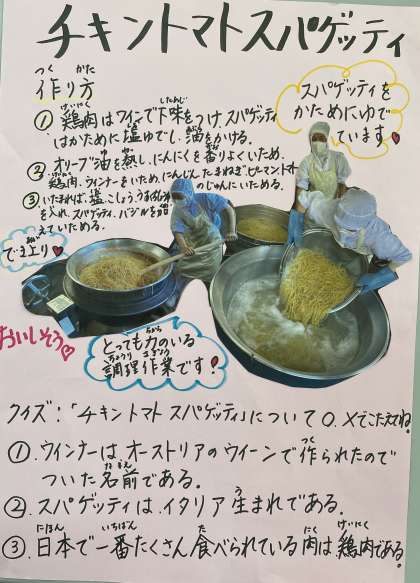 チキントマトスパゲッティ
作り方
つく かた
スパゲッティを
かためにゆで
ています
① 鶏肉はワインで下味をつけ、スパゲッティ
けいにく したあじ
はかために塩ゆでし、油をかける。
② オリーブ油を熱し、にんにくを香りよくいため、
鶏肉、ウィンナーをいため、にんじん、たまねぎ、ピーマン、トマト
のじゅんにいためる。
③ いたまれば、塩、こしょう、
を入れ、スパゲッティ、バジルを加
えていためる。
でき上り
おいしそう
とっても力のいる
ちから
調理作業です!
ちょうり さぎょう
クイズ:「チキントマトスパゲッティ」について○、×でこたえてね
①.ウインナーは、オーストリアのウイーンで作られたので
つく
ついた名前である。
なまえ
②.スパゲッティは、イタリア生まれである。
う
③.日本で一番たくさん食べられている肉は鶏肉である。
にほん いちばん た にく けいにく